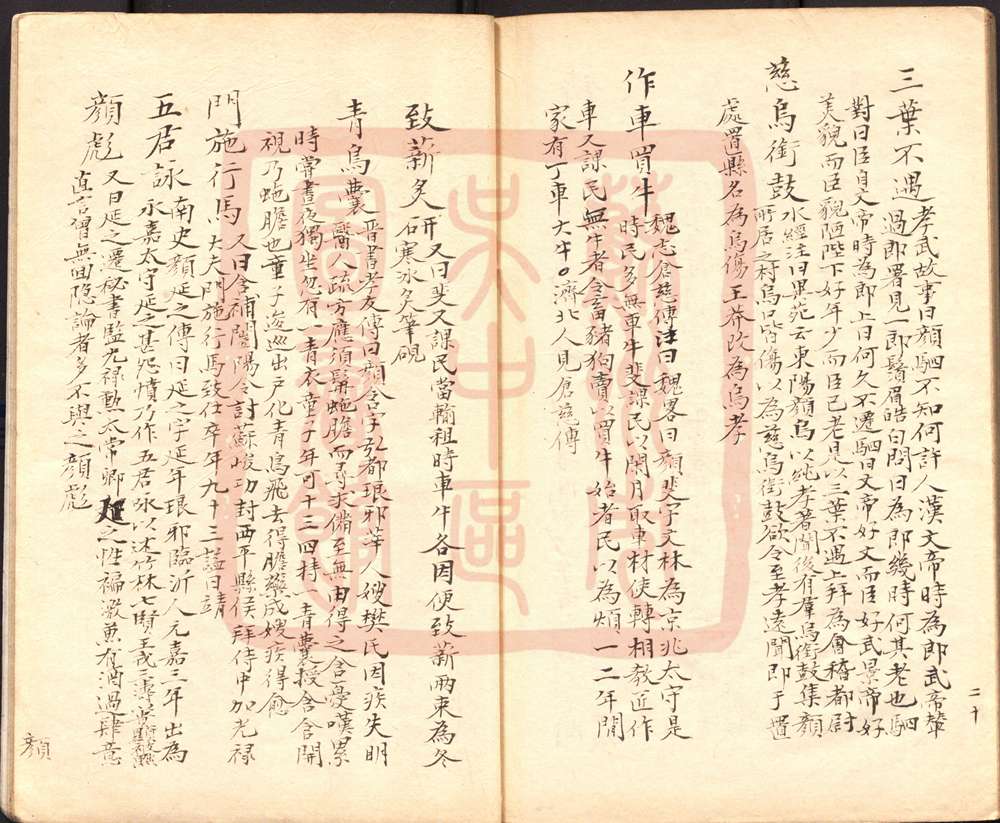 三葉不遇 孝武故事曰顔駟不知何許人漢文帝時為郎武帝輦
過郎署見一郎鬚眉皓白問曰為郎幾時何其老也駟
對曰臣自文帝時為郎上曰何久不遷駟曰文帝好文而臣好武景帝好
美貌而臣貌陋陛下好年少而臣已老是以三葉不遇上拜為會稽都尉
慈烏銜鼓 水經注曰異苑云東陽顔烏以純孝著聞後有羣烏銜鼓集顔
所居之村烏口皆傷以為慈烏銜鼓欲令至孝遠聞即于置
處置縣名為烏傷王莽改為烏孝
作車買牛 魏志倉慈傳注曰魏畧曰顔斐字文林為京兆太守是
時民多無車牛斐課民以閑月取車材使轉相教匠作
車又課民無牛者令畜豬狗賣以買牛始者民以為煩一二年間
家有丁車大牛○濟北人見倉慈傳
二十
致薪炙硏 又曰斐又課民當輸租時車牛各因便致薪兩束為冬
寒冰炙筆硯
青烏囊 晋書孝友傳曰顔含字弘都琅邪莘人嫂樊氏因疾失明
醫人疏方應須髯虵膽而尋求備至無由得之含憂嘆累
時嘗晝夜獨坐忽有一青衣童子年可十三四持一青囊授含含開
視乃虵膽也童子逡巡出戶化青鳥飛去得膽藥成嫂疾得愈
門施行馬 又曰含補闇陽令討蘇峻功封西平縣侯拜侍中加光禄
大夫門施行馬致仕卒年九十三諡曰靖
五君詠 南史顔延之傳曰延之字延年琅邪臨沂人元嘉三年出為
永嘉太守延之甚怨憤乃作五君咏以述竹林七賢王戎
顔彪 又曰延之遷秘書監光禄勲太常卿延之性褊激兼有酒過肆意
直言曾無回隐論者多不與之顔彪
顔